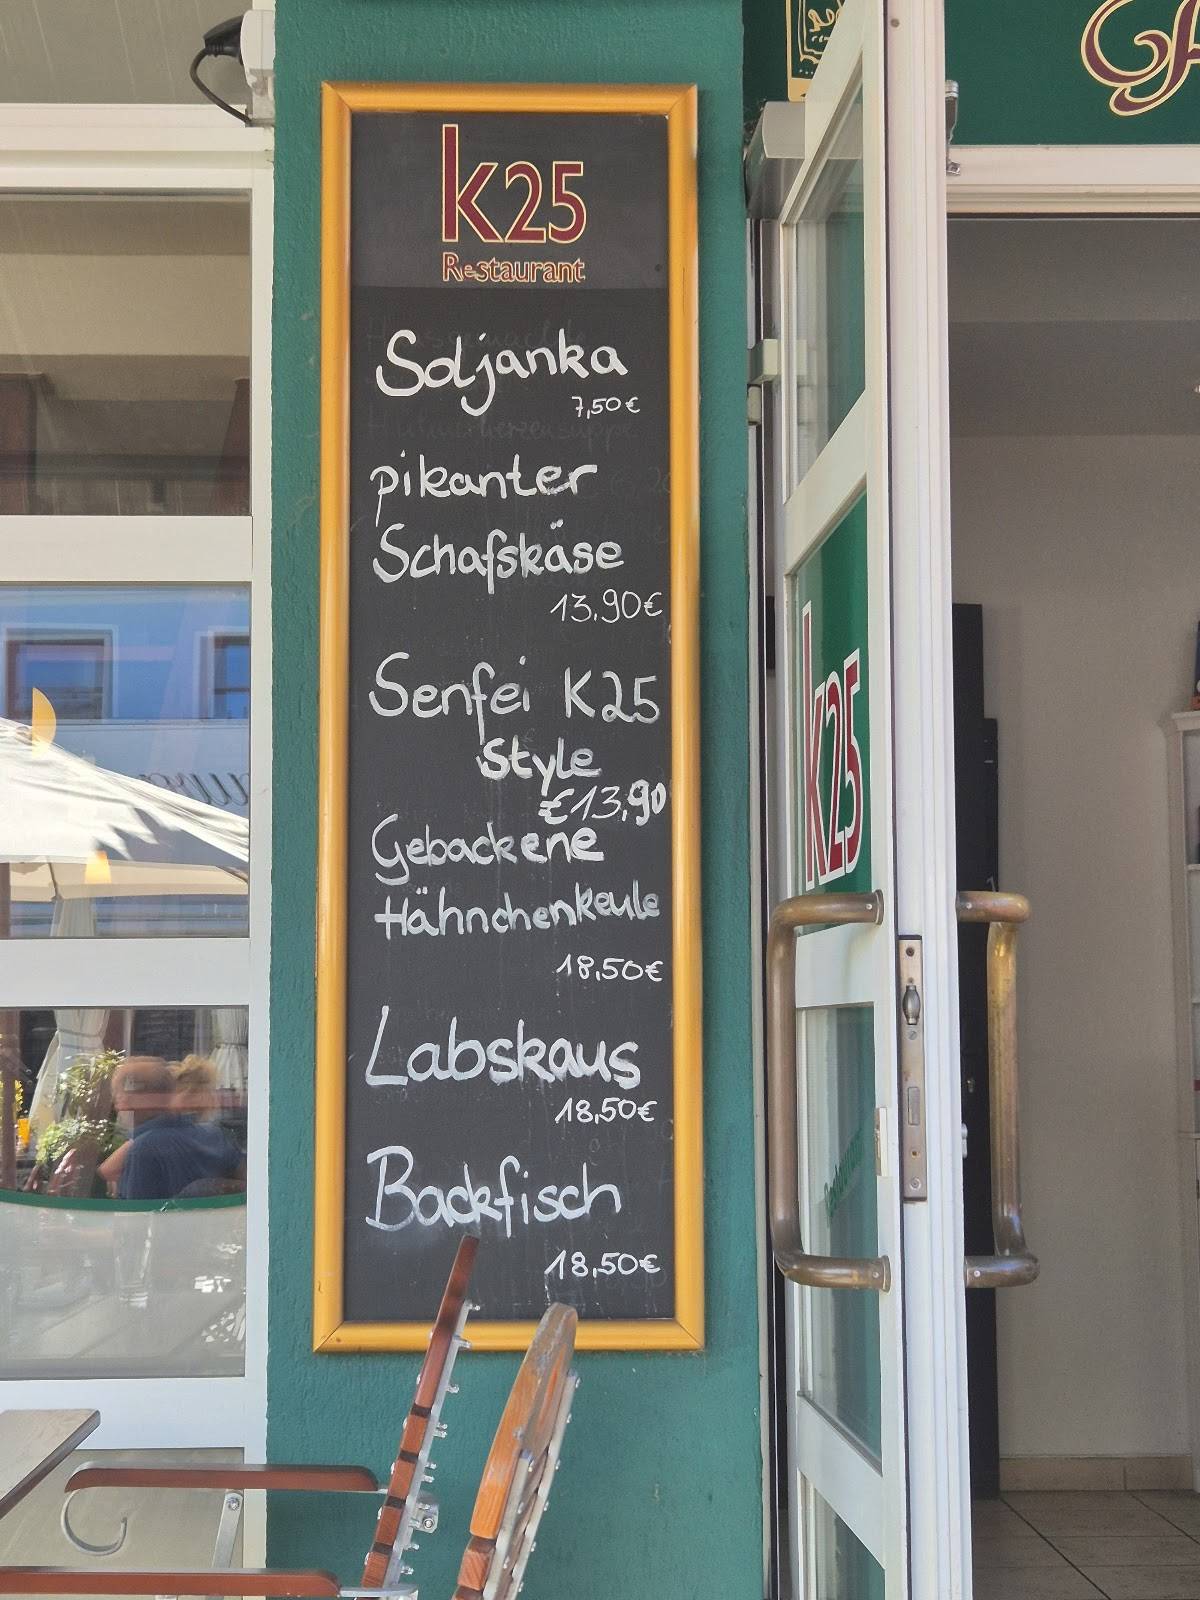 k25
Restaurant
Soljanka
7,50€
pikanter
Schafskäse
13,90€
Senfei K25
Style
€13,90
Gebackene
Hähnchenkeule
18,50€
Labskaus
18,50€
Backfisch
18,50€
k25